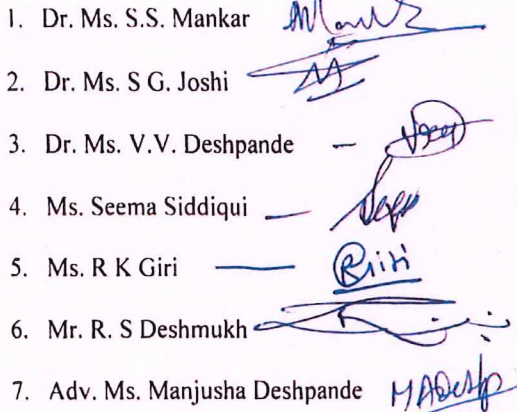 1. Dr. Ms. S.S. Mankar
2. Dr. Ms. S G. Joshi
3. Dr. Ms. V.V. Deshpande –
4. Ms. Seema Siddiqui —
5. Ms. R K Giri — Giri
6. Mr. R. S Deshmukh
7. Adv. Ms. Manjusha Deshpande